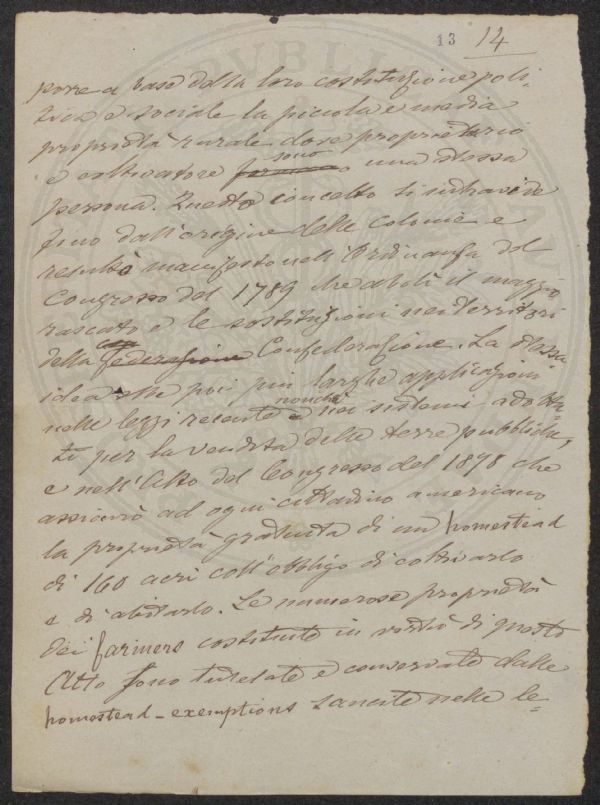 13 14
porre a base della loro costituzione poli-
tica e sociale la piccola e media
proprietà rurale dove proprietario
sono
e coltivatore una stessa
persona. Questo concetto si intravide
fino dall'origine delle colonie e
resultò manifesto nell'Ordinanza del
Congresso del 1789 che abolì il maggio
rascato e le sostituzioni nei territori
della federazione Confederazione. La stessa
idea ebbe poi più larghe applicazioni
nonché
nelle leggi recenti e nei sistemi adotta-
ti per la vendita delle terre pubbliche,
e nell'Atto del Congresso del 1878 che
assicurò ad ogni cittadino americano
la proprietà gratuita di un homestead
di 160 acri coll'obbligo di coltivarlo
e di abitarlo. Le numerose proprietà
dei farmers costituite in virtù di questo
Atto sono tutelate e conservate dalle
homestead-exemptions sancite nelle le-